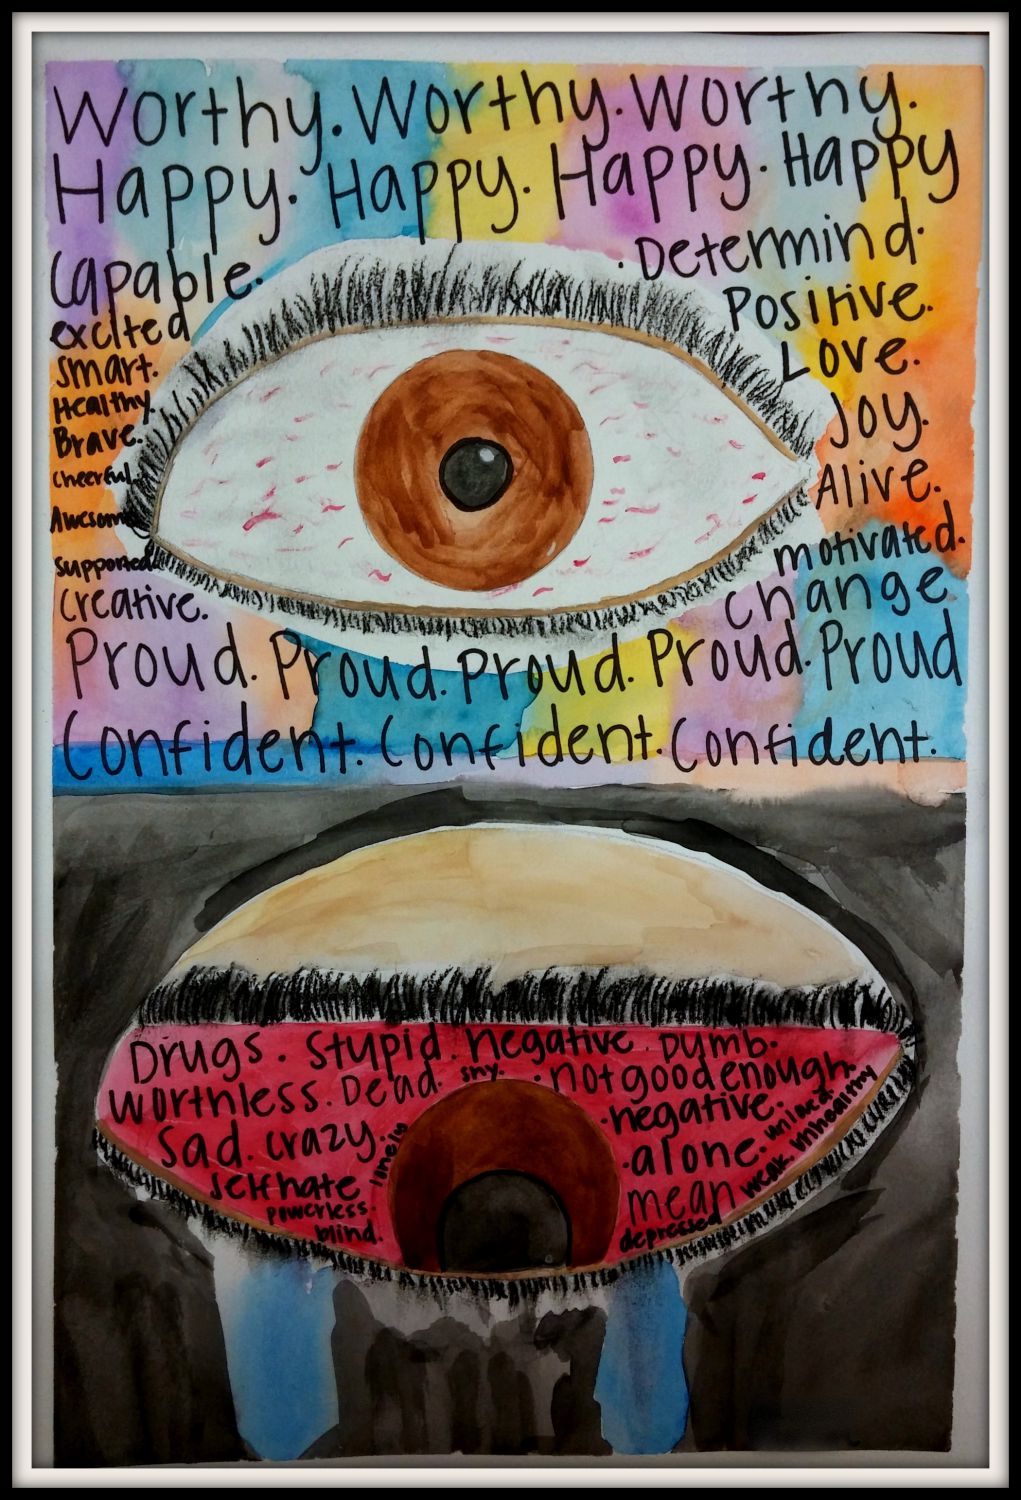 Worthy. Worthy. Worthy.
Happy. Happy. Happy. Happy
Capable.
excited
smart.
Healthy.
Brave.
cheerful.
Awesome
supported
creative.
. Determind.
Positive.
Love.
Joy.
Alive.
motivated.
change
Proud. Proud. Proud. Proud. Proud
Confident. Confident. Confident.
Drugs. Stupid. negative. Dumb.
worthless. Dead. shy. . not good enough.
Sad. crazy. lonely
self hate
powerless.
blind.
. negative.
. alone. unloved.
mean weak. unhealthy
depressed